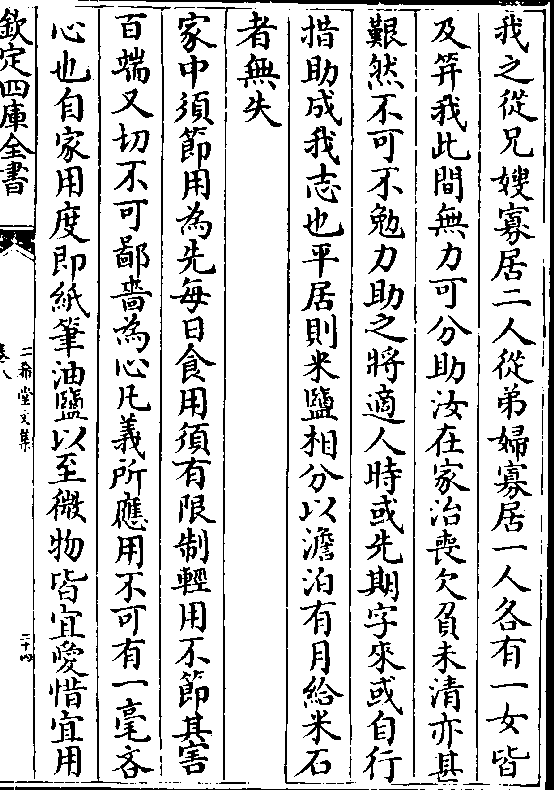 我之從兄嫂寡居二人從弟婦寡居一人各有一女皆
及笄我此間無力可分助汝在家治喪欠負未清亦甚
艱然不可不勉力助之將適人時或先期字來或自行
措助成我志也平居則米鹽相分以澹泊有月給米石
者無失
家中須節用為先每日食用須有限制輕用不節其害
百端又切不可鄙嗇為心凡義所應用不可有一毫吝
心也自家用度即紙筆油鹽以至微物皆宜愛惜宜用
欽定四庫全書
二希堂文集
卷八
三十四